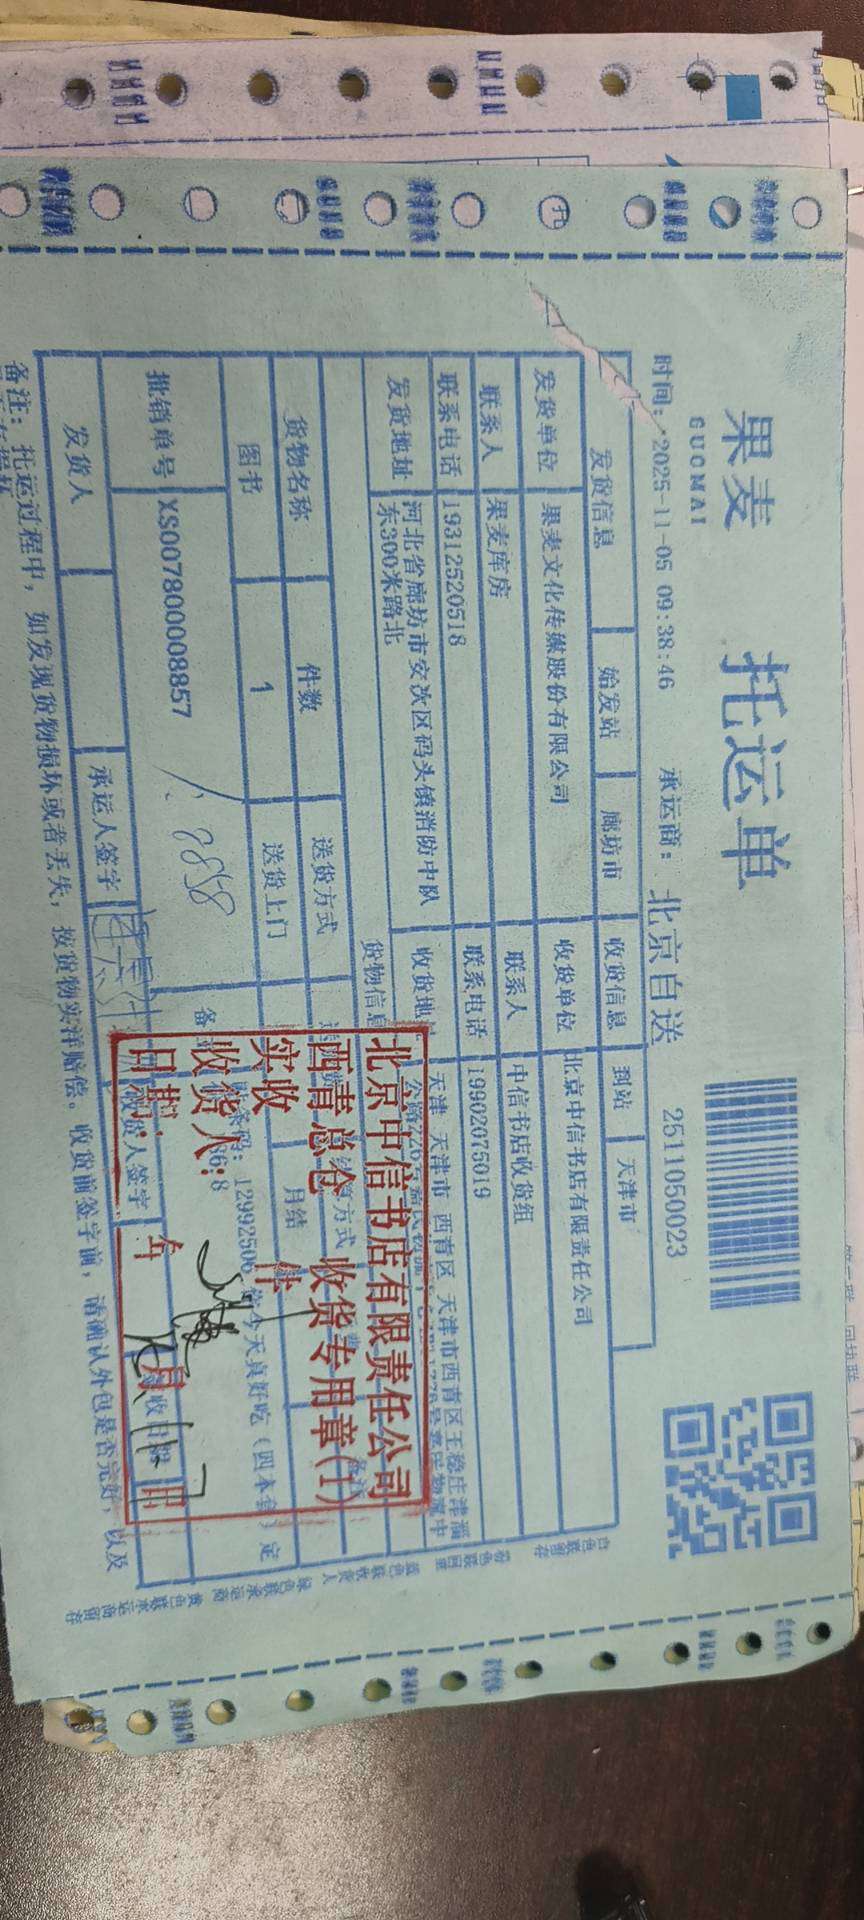 果麦
GUOMAI
托运单
时间: 2025-11-05 09:38:46 承运商: 北京自送 2511050023
发货信息 始发站 廊坊市 收货信息 到站 天津市
发货单位 果麦文化传媒股份有限公司 收货单位 北京中信书店有限责任公司
联系人 果麦库房 联系人 中信书店收货组
联系电话 19312520518 联系电话 19902075019
发货地址 河北省廊坊市安次区码头镇消防中队东300米路北 收货地 天津 天津市 西青区 天津市西青区王稳庄津淄
货物信息
货物名称 件数 送货方式 方式
图书 1 送货上门 月结
批销单号 XS007800008857 备 12992506 今天真好吃(四本套) 定
发货人 承运人签字 收货人签字
备注: 托运过程中, 如发现货物损坏或者丢失, 按货物实洋赔偿。收货前签字前, 请确认外包是否完好, 以及
北京中信书店有限责任公司
西青总仓 收货专用章(1)
实收 件
收货人:
日期: 年 月 日
白色联留存
粉色联回单
蓝色联收货人
绿色联承运商
黄色联承运商留存